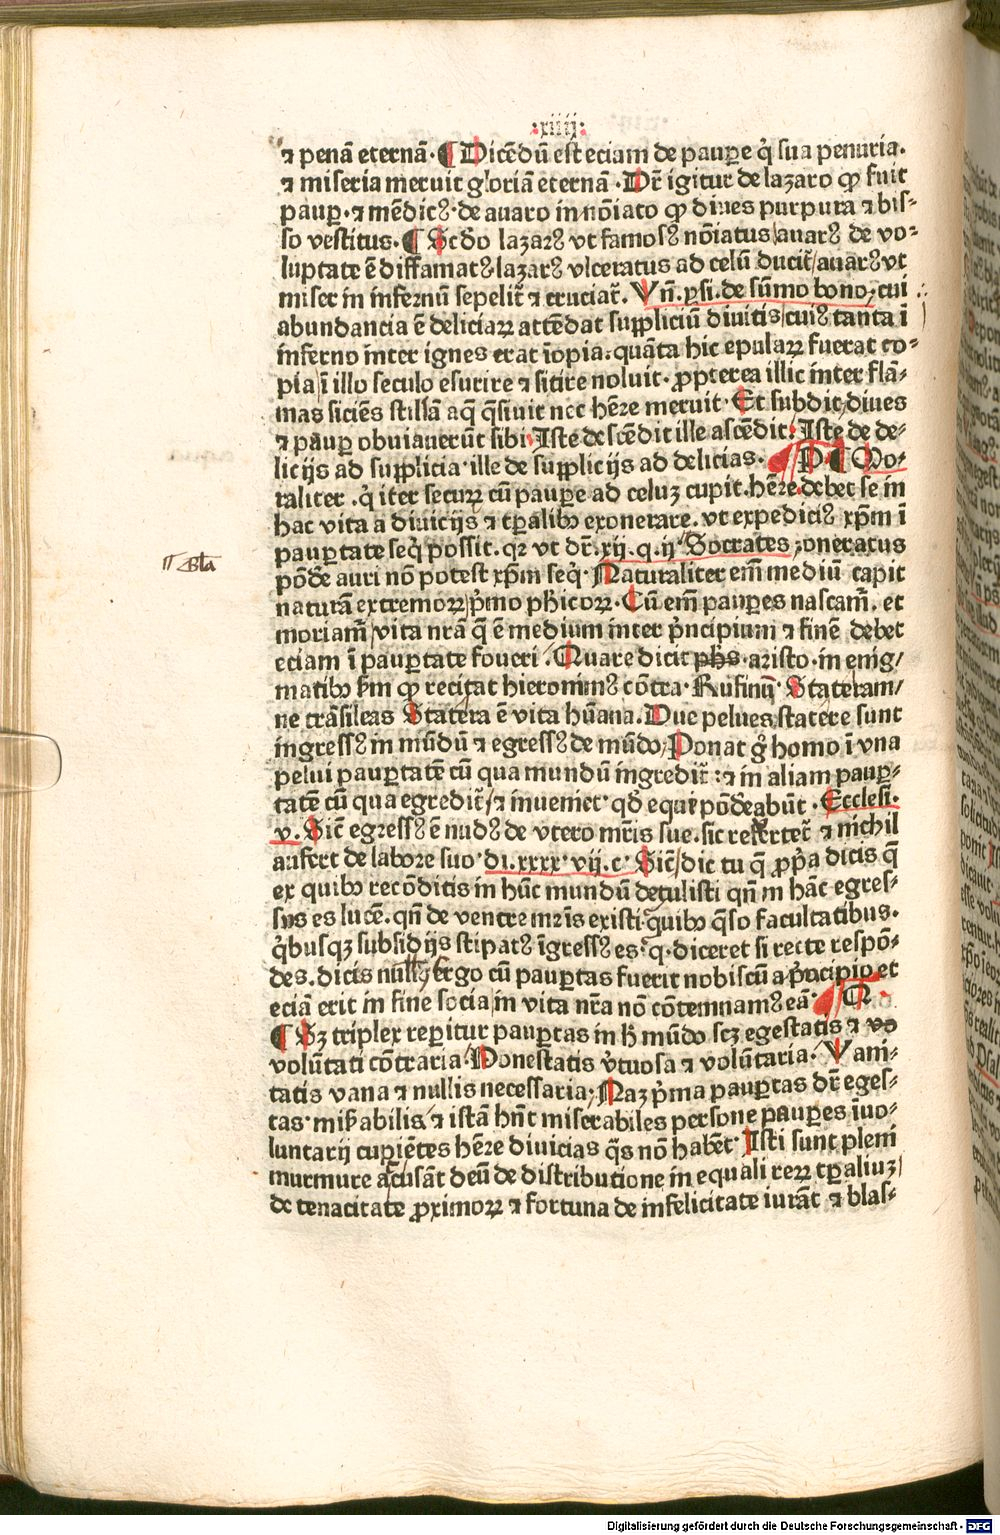 :xiiij:
⁊ penā eternā. ¶ Dicēdū est eciam de paupe q̇ sua penuria.
⁊ miseria meruit gloriā eternā. Dr̄ igitur de lazaro ꝙ fuit
paup. ⁊ mēdicꝰ. de auaro innōiato ꝙ diues purpura ⁊ bis-
so vestitus. ¶ Scdo lazarꝰ vt famosꝰ nōiatus/auarꝰ de vo-
luptate ē diffamatꝰ lazarꝰ vlceratus ad celū ducit̄/auarꝰ vt
miser in infernū sepelit̄ ⁊ cruciat̄. Vn̄. ꝑsi. de sūmo bono, cui
abundancia ē deliciaꝝ attēdat suppliciū diuitis/cuiꝰ tanta ī
inferno inter ignes erat īopia. quāta hic epulaꝝ fuerat co-
pia/ī illo seculo esurire ⁊ sitire noluit. ꝓpterea illic inter flā-
mas siciēs stillā aq̄ q̄siuit nec hēre meruit. Et subdit, diues
⁊ paup obuiauerūt sibi. Iste descēdit ille ascēdit. Iste de de-
licijs ad supplicia. ille de supplicijs ad delicias. P. ¶ Mo-
raliter. q̇ iter securꝝ cū paupe ad celuꝫ cupit. hēre. debet se in
hac vita a diuicijs ⁊ tꝑalibꝫ exonerare. vt expeditꝰ xp̄m ī
pauptate seq̇ possit. qꝛ vt dr̄. xij. q. ij Socrates, oneratus
pōde auri nō potest xp̄m seq̇. Naturaliter em̄ mediū capit
naturā extremoꝝ/p̄mo phicoꝝ. Cū em̄ paupes nascam̄. et
moriam̄/vita nrā q̄ ē medium inter p̄ncipium ⁊ finē debet
eciam ī pauptate foueri. Quare dicit phs. aristo. in enig/
matibꝫ s̄m ꝙ recitat hieronimꝰ cōtra. Rufinū. Stateram/
ne trāsileas Statera ē vita hūana. Due pelues statere sunt
ingressꝰ in mūdū ⁊ egressꝰ de mūdo, Ponat g̊ homo ī vna
pelui pauptatē cū qua mundū ingredit̄ : ⁊ in aliam paup-
tatē cū qua egredit̄/⁊ inueniet. qd equi pōderabūt. Ecclesi.
v. Sic̄ egressꝰ ē nudꝰ de vtero mr̄is sue. sic reuertet̄ ⁊ nichil
aufert de labore suo. di. xxxx. vij. c. Sic̄/dic tu q̄ ꝓpa dicis q̄
ex quibꝫ recōditis in hūc mundū detulisti qn̄ in hāc egres-
sus es lucē. qn̄ de ventre mr̄is existi. quibꝫ q̄so facultatibus.
q̇busqꝫ subsidijs stipatꝰ īgressꝰ es. q. diceret si recte respō-
des. dicis nullꝯ Ergo cū pauptas fuerit nobiscū a p̄ncipio et
eciā erit in fine socia/in vita nr̄a nō cōtemnamꝰ eā.
¶ Sꝫ triplex repitur pauptas in h̄ mūdo scꝫ egestatis ⁊ vo
volūtati cōtraria. Honestatis v̄tuosa ⁊ volūtaria. Vani-
tatis vana ⁊ nullis necessaria, Naꝫ p̄ma pauptas dr̄ eges-
tas. misabilis/⁊ istā hn̄t miserabiles persone paupes īuo-
luntarij cupiētes hēre diuicias q̄s nō habēt. Isti sunt pleni
murmure accusāt deū de distributione in equali reꝝ tꝑaliuꝫ/
de tenacitate ꝓximoꝝ ⁊ fortuna de infelicitate iurāt ⁊ blas-
Digitalisierung gefördert durch die Deutsche Forschungsgemeinschaft - DFG